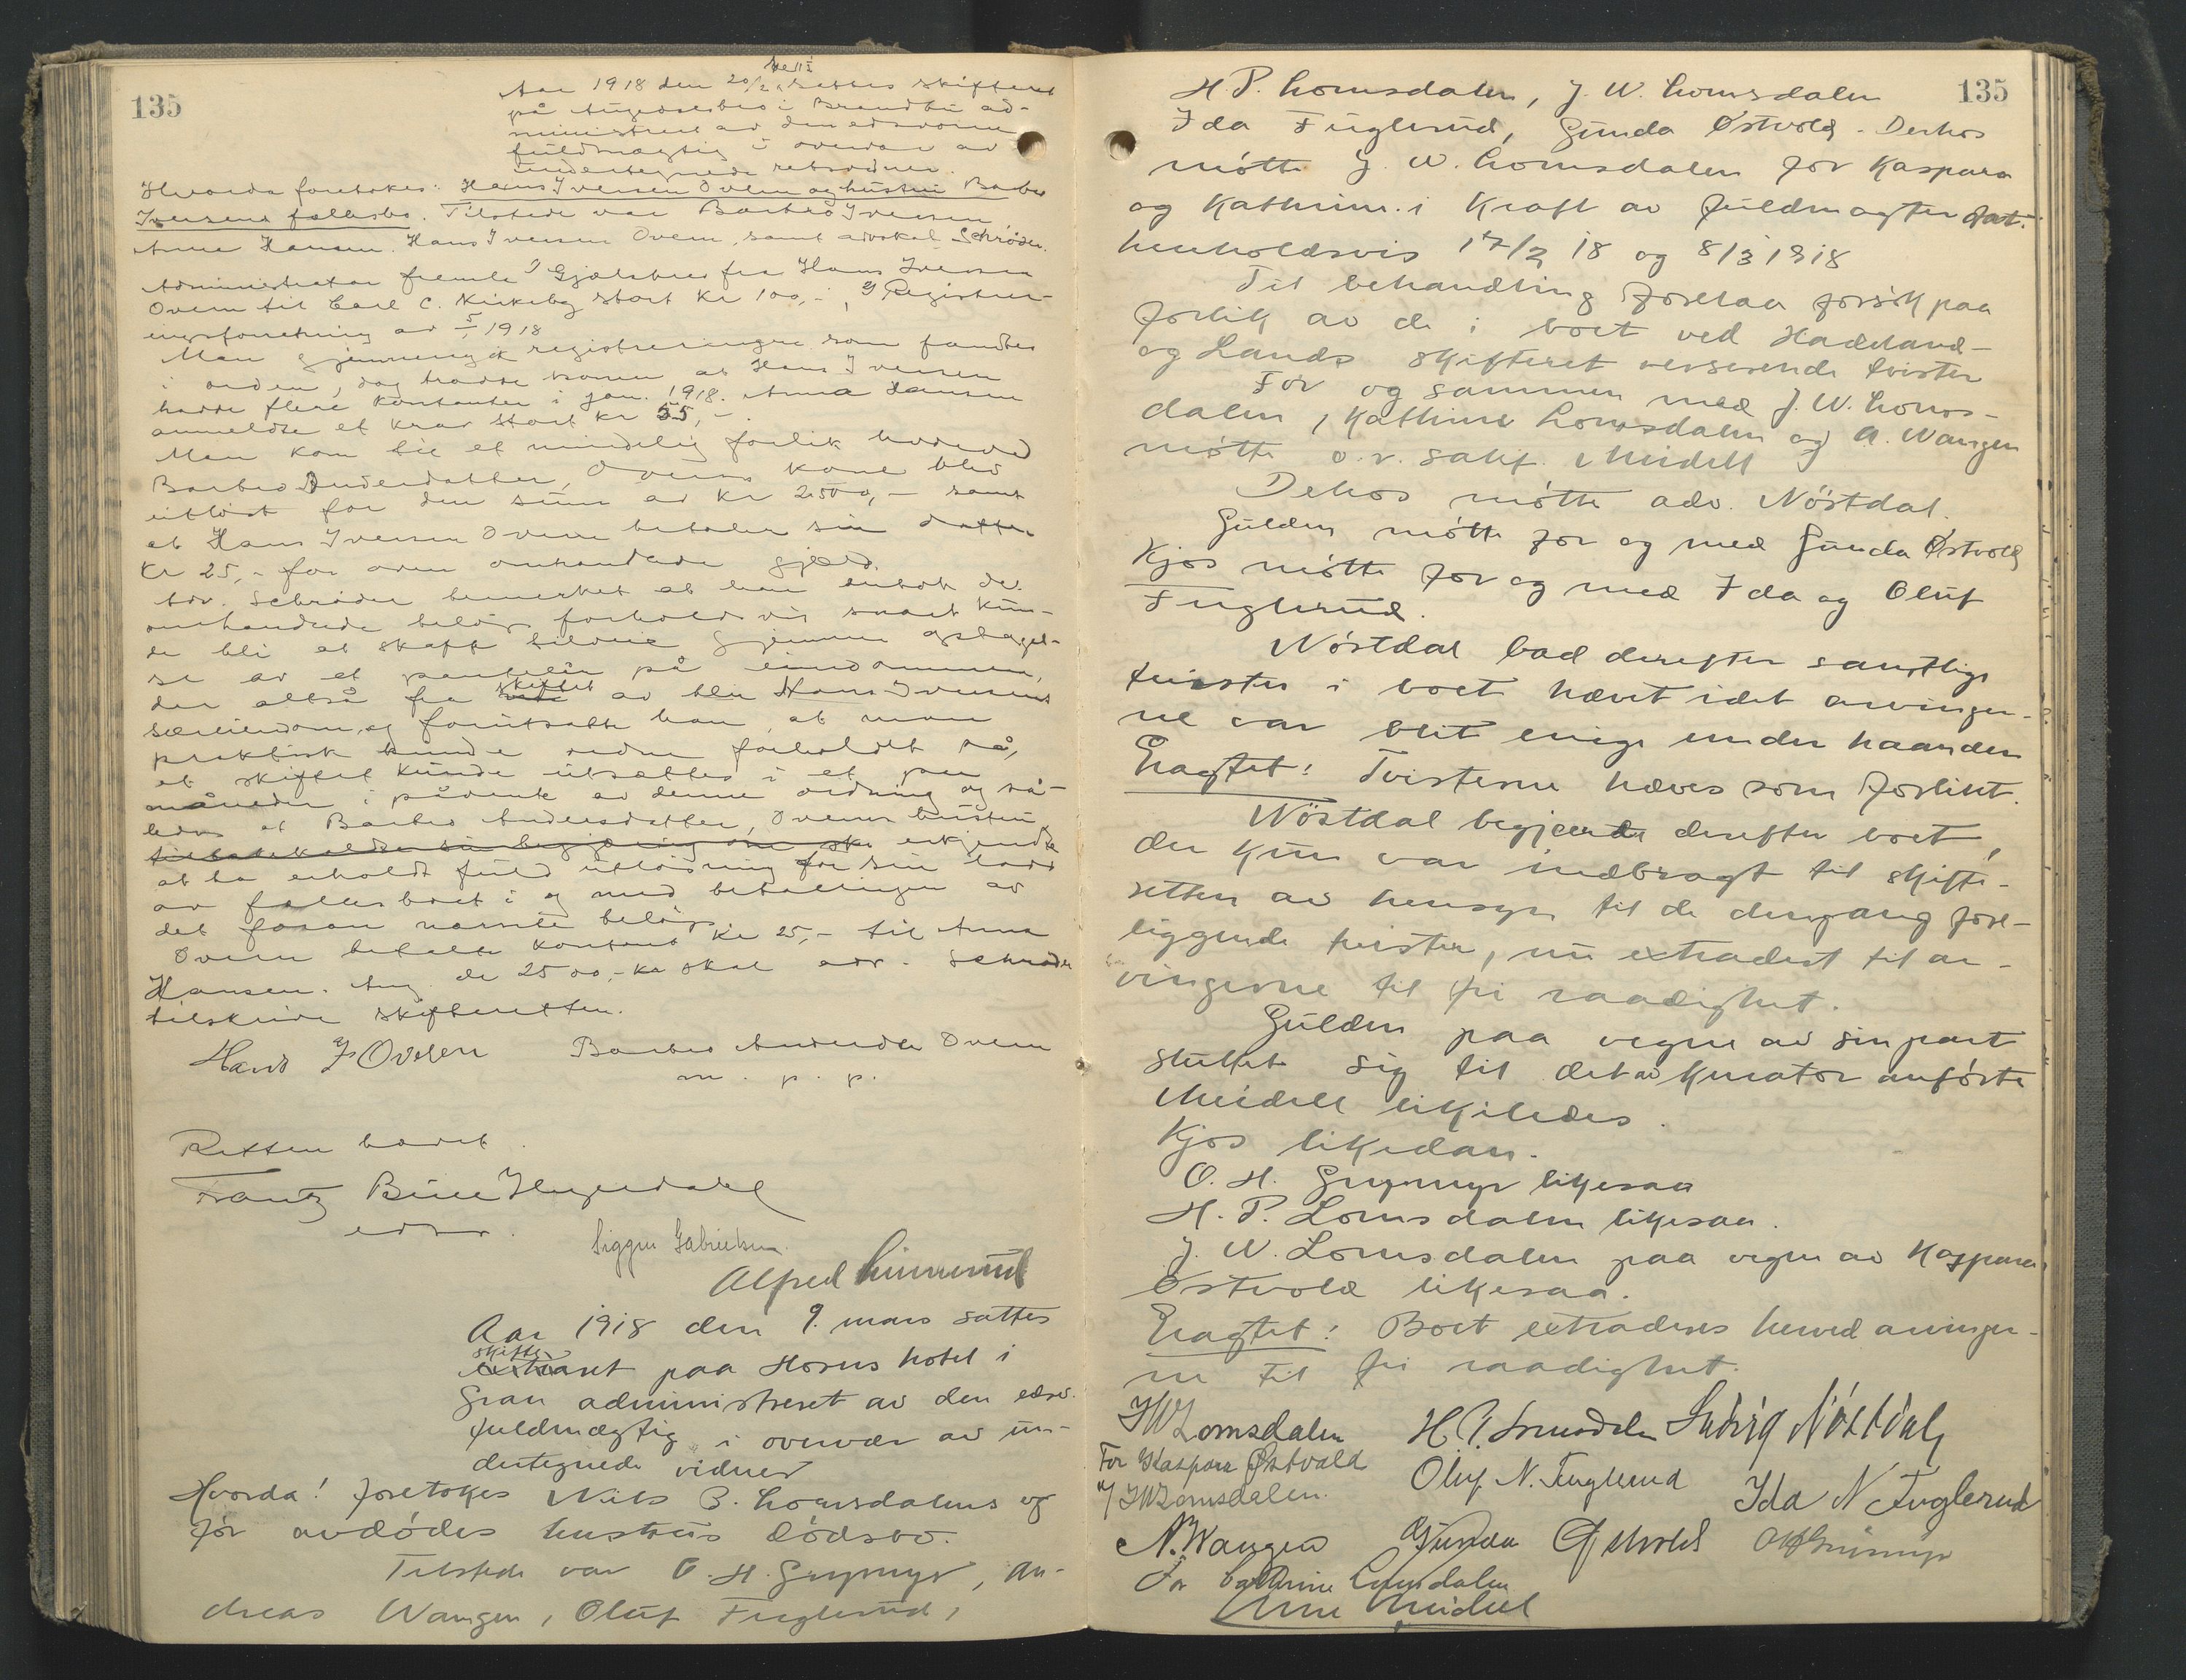 135
Aar 1918 den 20/2 sattes skifteret
på Augedalsbro i Brandbu ad-
ministreret av den edsvorne
fuldmægtig i overvær av
undertegnede retsvidner.
Hvorda foretokes: Hans Iversen Ovren og hustru Barbro
Iversens fællesbo. Tilstede var Barbro Iversen
Anna Hansen. Hans Iversen Ovren, samt advokat Schrøder.
Administrator fremla 1) Gjældsbrev fra Hans Iversen
Ovren til Carl C. Kirkeby stort kr 100,-, 2) Registrer-
ingsforretning av 1918
Man gjennemgik registreringen som fandtes
i orden, dog trodde konen at Hans Iversen
hadde flere kontanter i jan. 1918. Anna Hansen
anmeldte et krav stort kr 55,-.
Man kom til et mindelig forlik hvorved
Barbro Andersdatter, Ovrens kone blev
utløst for den sum av kr 2500,- samt
at Hans Iversen Ovren betaler sin datter
kr 25,- for oven omhandlede gjæld.
Adv. Schrøder bemerket at han antok det
omhandlede beløp forholdsvis snart kun-
de bli at skaffe tilveie gjennem optagel-
se av et pantelån på eiendommen,
der altså fra skiftet av blir Hans Iversens
særeiendom, og forutsatte han, at man
praktisk kunde ordne forholdet så,
at skiftet kunde utsættes i et par
måneder i påvente av denne ordning og så-
ledes at Barbro Andersdatter, Ovrens hustru
tilbakekaldte sin begjæring om skr erkjendte
at ha erholdt fuld utløsning for sin lodd
av fællesboet i og med betalingen av
det foran nævnte beløp.
Ovren betalte kontant kr 25,- til Anna
Hansen. Ang. de 2500,- kr skal adv. Schrøder
tilskrive skifteretten.
Hans I Ovren Barbro Andersdtr Ovren
m. p. p.
Retten hævet.
Frantz Bull Hegerdahl
edsv.
Sigger Gabrielsen.
Alfred Linnerud
Aar 1918 den 9. mars sattes
skifte
extraret paa Horns hotel i
Gran administreret av den edsv.
fuldmægtig i overvær av un-
dertegnede vidner
Hvorda! foretokes Nils P. Lomsdalens og
før avdødes hustrus dødsbo.
Tilstede var O. H. Grymyr, An-
dreas Wangen, Oluf Fuglerud,
135
H. P. Lomsdalen, J. W. Lomsdalen
Ida Fuglerud, Gunda Østvold. Derhos
møtte J. W. Lomsdalen for Kaspara
og Kathrine i kraft av fuldmagter dat.
henholdsvis 17/2 18 og 8/3 1918
Til behandling forelaa forsøk paa
forlik av de i boet ved Hadeland-
og Lands skifteret verserende tvister
For og sammen med J. W. Loms-
dalen, Kathrine Lomsdalen og A. Wangen
møtte o.r. sakf. Meidell
Dehos møtte adv. Nöstdal.
Gulden møtte for og med Gunda Østvold
Kjos møtte for og med Ida og Oluf
Fuglerud.
Nöstdal bad derefter samtlige
tvister i boet hævet idet arvinger-
ne var blit enige under haanden
Eragtet: Tvisterne hæves som forlikt.
Nöstdal begjærte derefter boet,
der kun var indbragt til skifte-
retten av hensyn til de dengang fore-
liggende tvister, nu extradert til ar-
vingerne til fri raadighet.
Gulden paa vegne av sin part
sluttet sig til det av kurator anførte
Meidell likeledes.
Kjos likedan.
O. H. Grymyr likesaa
H. P. Lomsdalen likesaa.
J. W. Lomsdalen paa vegne av Kaspara
Østvold likesaa.
Eragtet: Boet extraderes herved arvinger-
ne til fri raadighet.
J W Lomsdalen H. P. Lomsdalen Ludvig Nöstdal
For Kaspara Østvold Oluf N. Fuglerud Ida N Fuglerud
J W Lomsdalen.
A. Wangen Gunda Østvold O H Grimyr
For Cathrine Lomsdalen
Arne Meidell